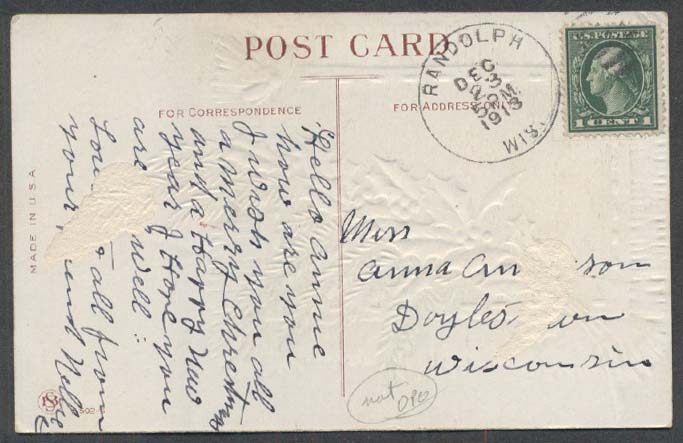 POST CARD
FOR CORRESPONDENCE
FOR ADDRESS ONLY
RANDOLPH
DEC
23
1913
WIS.
U.S. POSTAGE
1 CENT 1
MADE IN U.S.A
Hello Anne
how are you
I wish you all
a merry Christmas
and a Happy New
year I Hope you
are well
to all from
your Nellie
Miss
Anna
Wisconsin
not
DPO